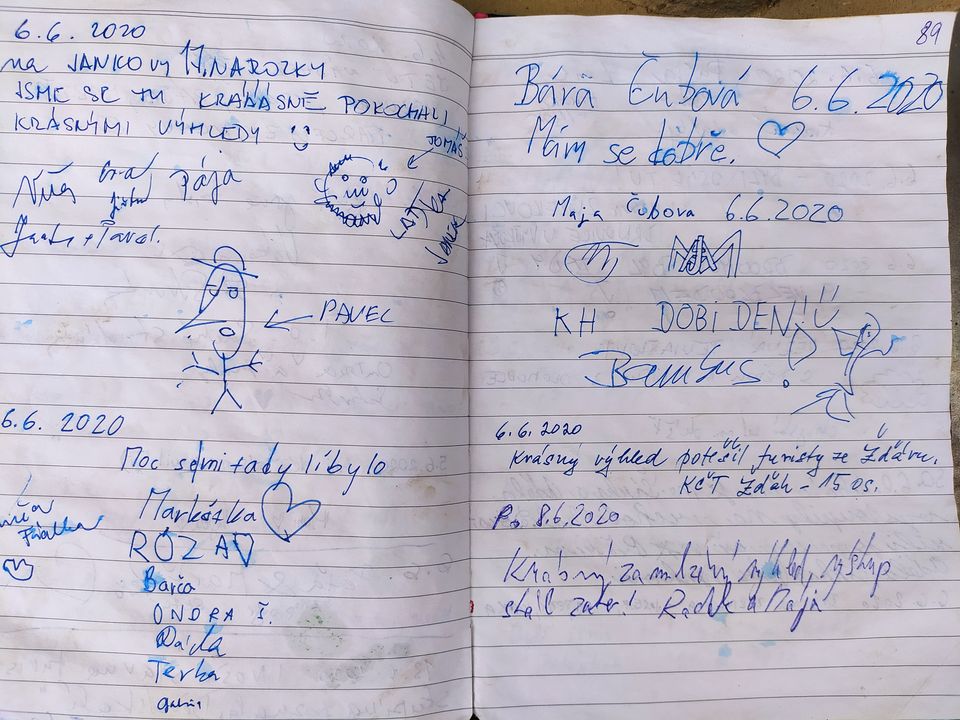 6.6. 2020
na JANKOVY 17. NAROZKY
JSME SE TU KRÁÁÁSNĚ POKOCHALI
KRÁSNÝMI VÝHLEDY
TOMÁŠ
Pája
Pavel.
PAVEL
6.6. 2020
Moc se mi tady líbylo
Markétka
RÓZA
Barča
ONDRA Š.
Terka
89
Bára Čubová 6.6.2020
Mám se dobře.
Maja Čubova 6.6.2020
MM
KH DOBÍ DEN!
Bambus.
6.6.2020
Krásný výhled potěšil turisty ze Žďáru.
KČT Žďár - 15 os.
Po 8.6.2020
Krásný výhled, výstup
stál zato! Radek a Mája